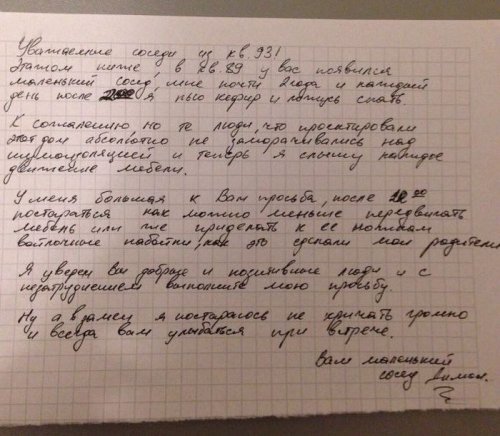 Уважаемые соседи из кв. 93!
Этажом ниже, в кв. 89 у вас появился
маленький сосед, мне почти 2 года и каждый
день после 20⁰⁰ я пью кефир и ложусь спать.
К сожалению, но те люди, что проектировали
этот дом абсолютно не заморачивались над
шумоизоляцией и теперь я слышу каждое
движение мебели.
У меня большая к Вам просьба, после 20⁰⁰
постараться как можно меньше передвигать
мебель или же приделать к ее ножкам
войлочные набойки, как это сделали мои родители
Я уверен Вы добрые и позитивные люди и с
незатруднением выполните мою просьбу.
Ну а взамен я постараюсь не кричать громко
и всегда вам улыбаться при встрече.
Ваш маленький
сосед Димон.